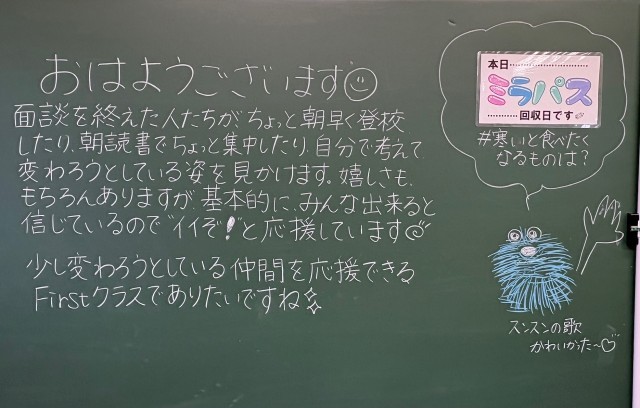 おはようございます
面談を終えた人たちが、ちょっと朝早く登校
したり、朝読書でちょっと集中したり、自分で考えて、
変わろうとしている姿を見かけます。嬉しさも、
もちろんありますが、基本的に、みんな出来ると
信じているので“イイぞ!”と応援しています
少し変わろうとしている仲間を応援できる
Firstクラスでありたいですね
本日……………
ミラパス
……回収日です
#寒いと食べたく
なるものは?
スンスンの歌
かわいかった〜♡